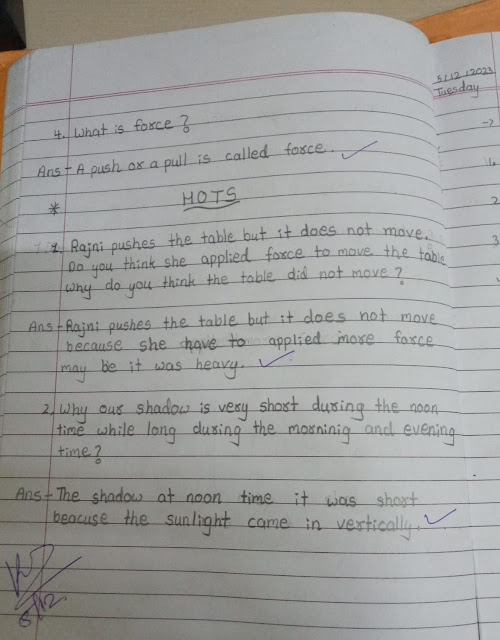 5/12/2023
Tuesday
4. What is force?
Ans- A push or a pull is called force.
* HOTS
1. Rajni pushes the table but it does not move.
Do you think she applied force to move the table
why do you think the table did not move?
Ans- Rajni pushes the table but it does not move
because she have to applied more force
may be it was heavy.
2. Why our shadow is very short during the noon
time while long during the morninig and evening
time?
Ans- The shadow at noon time it was short
beacuse the sunlight came in vertically.
6/12
1.
2
3